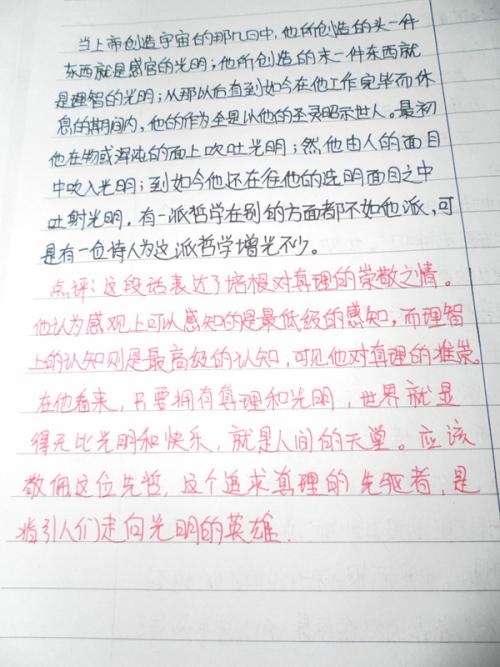 当上帝创造宇宙的那几日中，他所创造的头一件
东西就是感官的光明；他所创造的末一件东西就
是理智的光明；从那以后直到如今在他工作完毕而休
息的期间内，他的作为全是以他的圣灵昭示世人。最初
他在物或浑沌的面上吹吐光明；然他由人的面目
中吹入光明；到如今他还在往他的选明面目之中
吐射光明。有一派哲学在别的方面都不如他派，可
是有一位诗人为这派哲学增光不少。
点评：这段话表达了培根对真理的崇敬之情。
他认为感观上可以感知的是最低级的感知，而理智
上的认知则是最高级的认知，可见他对真理的推崇。
在他看来，只要拥有真理和光明，世界就显
得无比光明和快乐，就是人间的天堂。应该
敬佩这位先哲，这个追求真理的先驱者，是
指引人们走向光明的英雄．